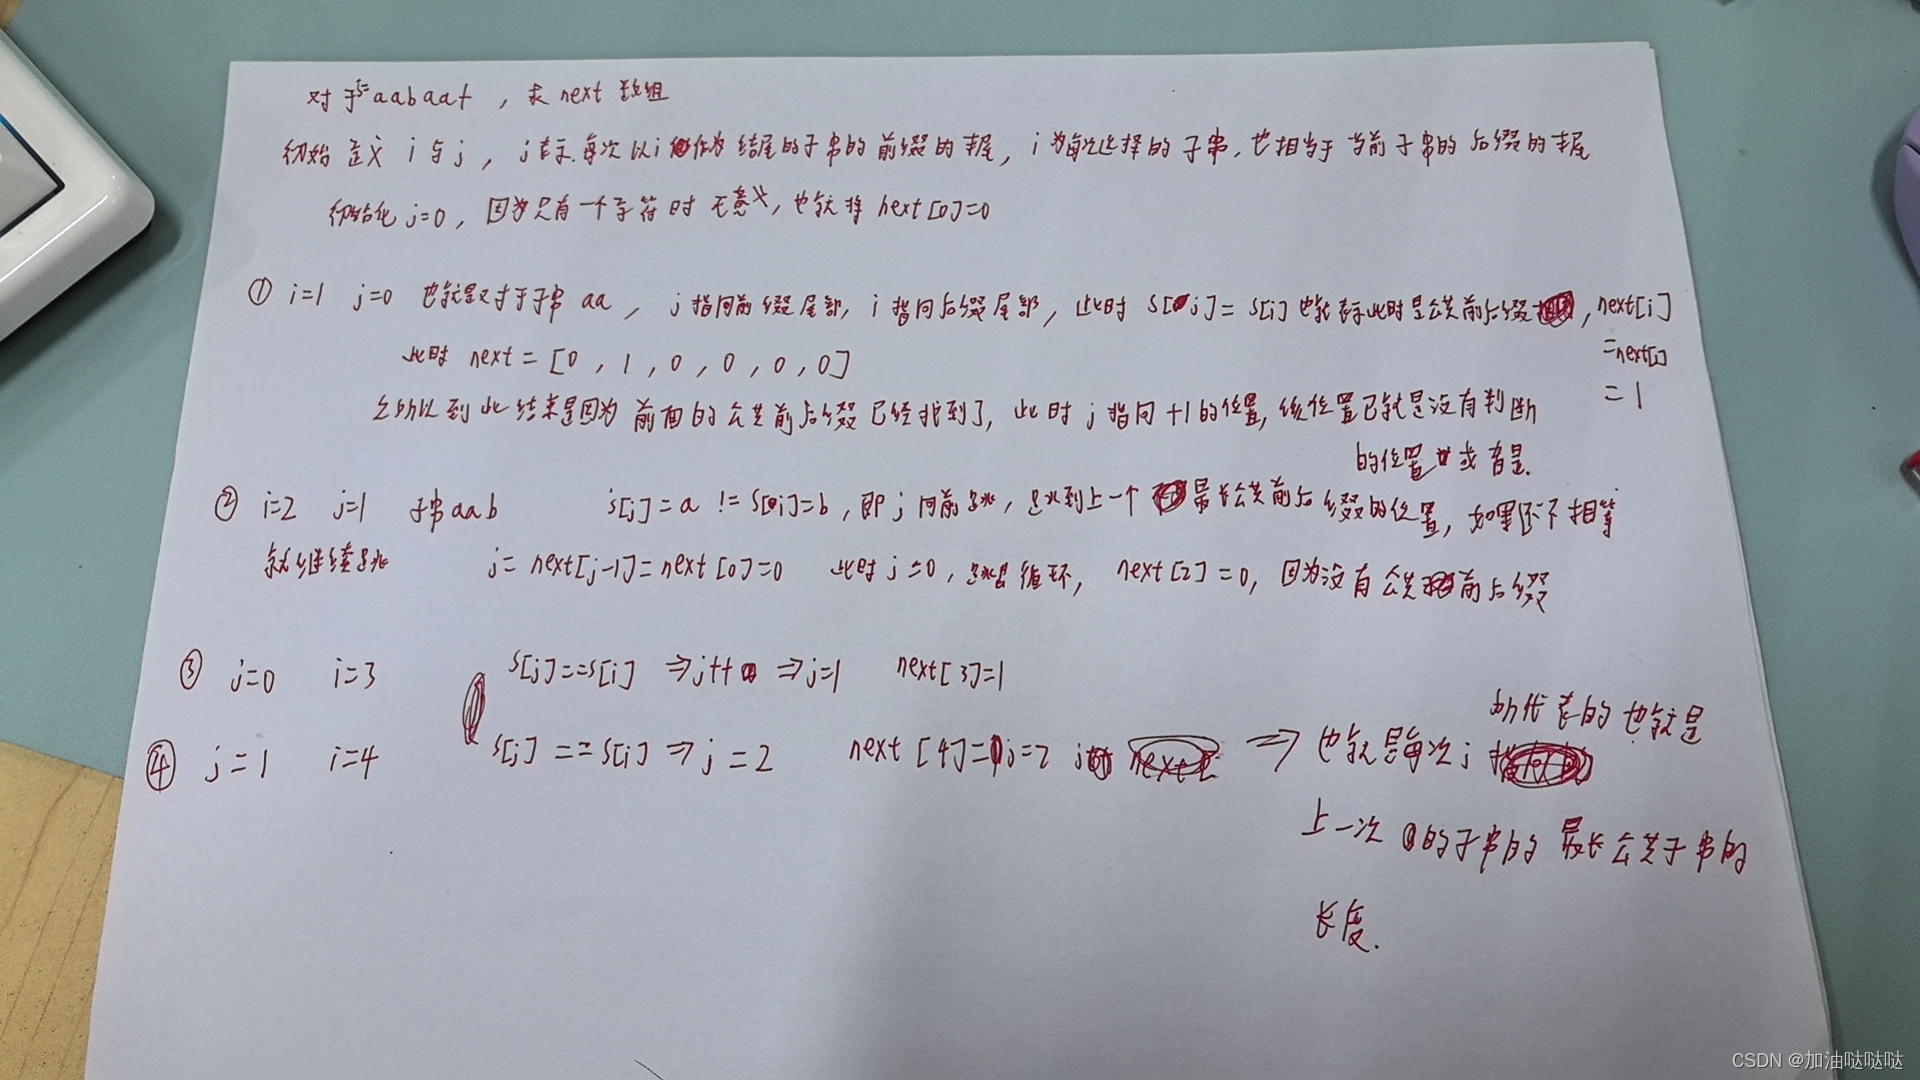 对于s=aabaaf，求next数组
初始定义i与j，j表示每次以i作为结尾的子串的前缀的末尾，i为每次选择的子串，也相当于当前子串的后缀的末尾
初始化j=0，因为只有一个字符时无意义，也就将next[0]=0
① i=1 j=0 也就是对于子串aa，j指向前缀尾部，i指向后缀尾部，此时s[j]=s[i]也就表示此时是公共前后缀，next[i]
=next[1]
此时 next=[0,1,0,0,0,0]
=1
之所以到此结果是因为前面的公共前后缀已经找到了，此时j指向+1的位置，该位置也就是没有判断
的位置
② i=2 j=1 子串aab s[j]=a != s[i]=b，即j向前跳，跳到上一个最长公共前后缀的位置，如果还不相等
就继续跳 j=next[j-1]=next[0]=0 此时j=0，跳出循环，next[2]=0，因为没有公共前后缀
③ j=0 i=3 s[j]==s[i] ⇒j++ ⇒j=1 next[3]=1
所代表的也就是
④ j=1 i=4 s[j]==s[i]⇒j=2 next[4]=j=2 ⇒ 也就是每次j
上一次的子串的最长公共子串的
长度.
CSDN @加油哒哒哒